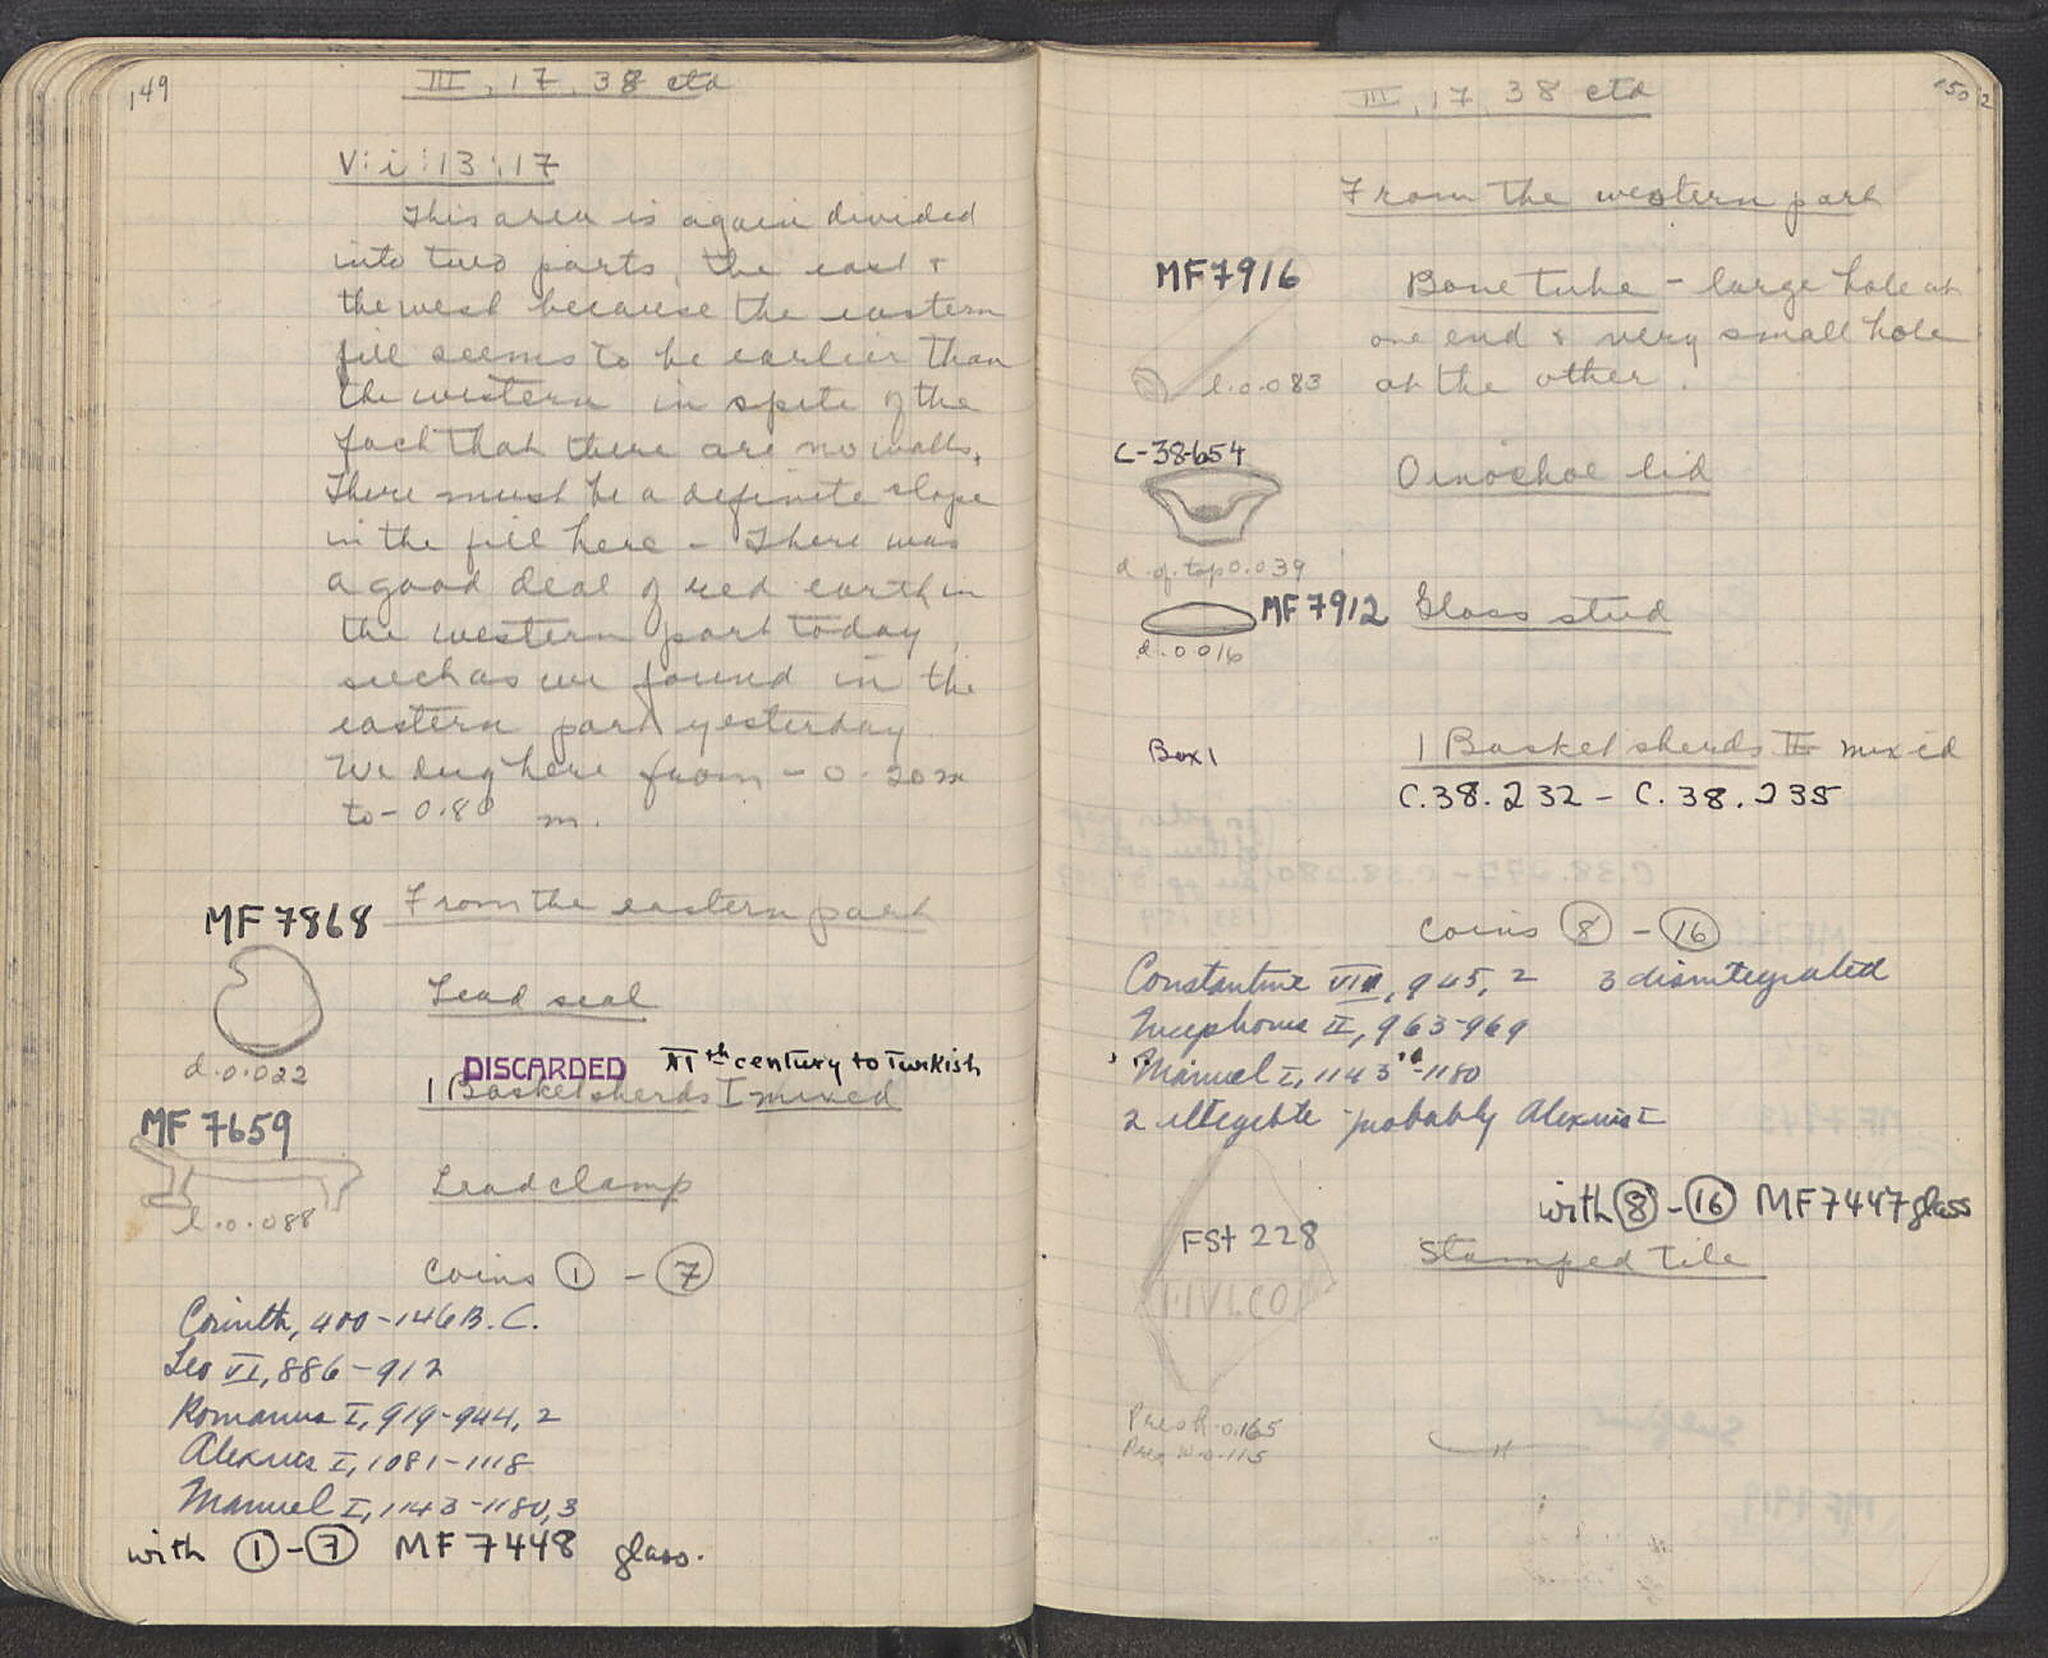 149
III, 17, 38 ctd
V:i:13:17
This area is again divided
into two parts, the east +
the west because the eastern
fill seems to be earlier than
the western in spite of the
fact that there are no walls.
There must be a definite slope
in the fill here - There was
a good deal of red earth in
the western part today,
such as we found in the
eastern part yesterday
We dug here from -0.20 m
to -0.80 m.
MF 7868 From the eastern part
Lead seal
d.0.022
DISCARDED XIth century to Turkish
1 Basket sherds I mixed
MF 7659
Lead clamp
l.0.088
Coins 1 - 7
Corinth, 400-146 B.C.
Leo VI, 886-912
Romanus I, 919-944, 2
Alexius I, 1081-1118
Manuel I, 1143-1180, 3
with 1-7 MF 7448 glass.
III, 17, 38 ctd
150
From the western part
MF 7916 Bone tube - large hole at
one end & very small hole
l.0.083 at the other.
C-38-654 Oinoshoe lid
d. of top 0.039
MF 7912 Glass stud
d.0.016
Box 1 1 Basket sherds II mixed
C.38.232 - C.38.235
Coins 8 - 16
Constantine VII, 945, 2 3 disintegrated
Nicephorus II, 963-969
Manuel I, 1143-1180
2 illegible probably Alexius I
with 8-16 MF 7447 glass
FSt 228 Stamped tile
Pres h. 0.165
Pres w. 0.115